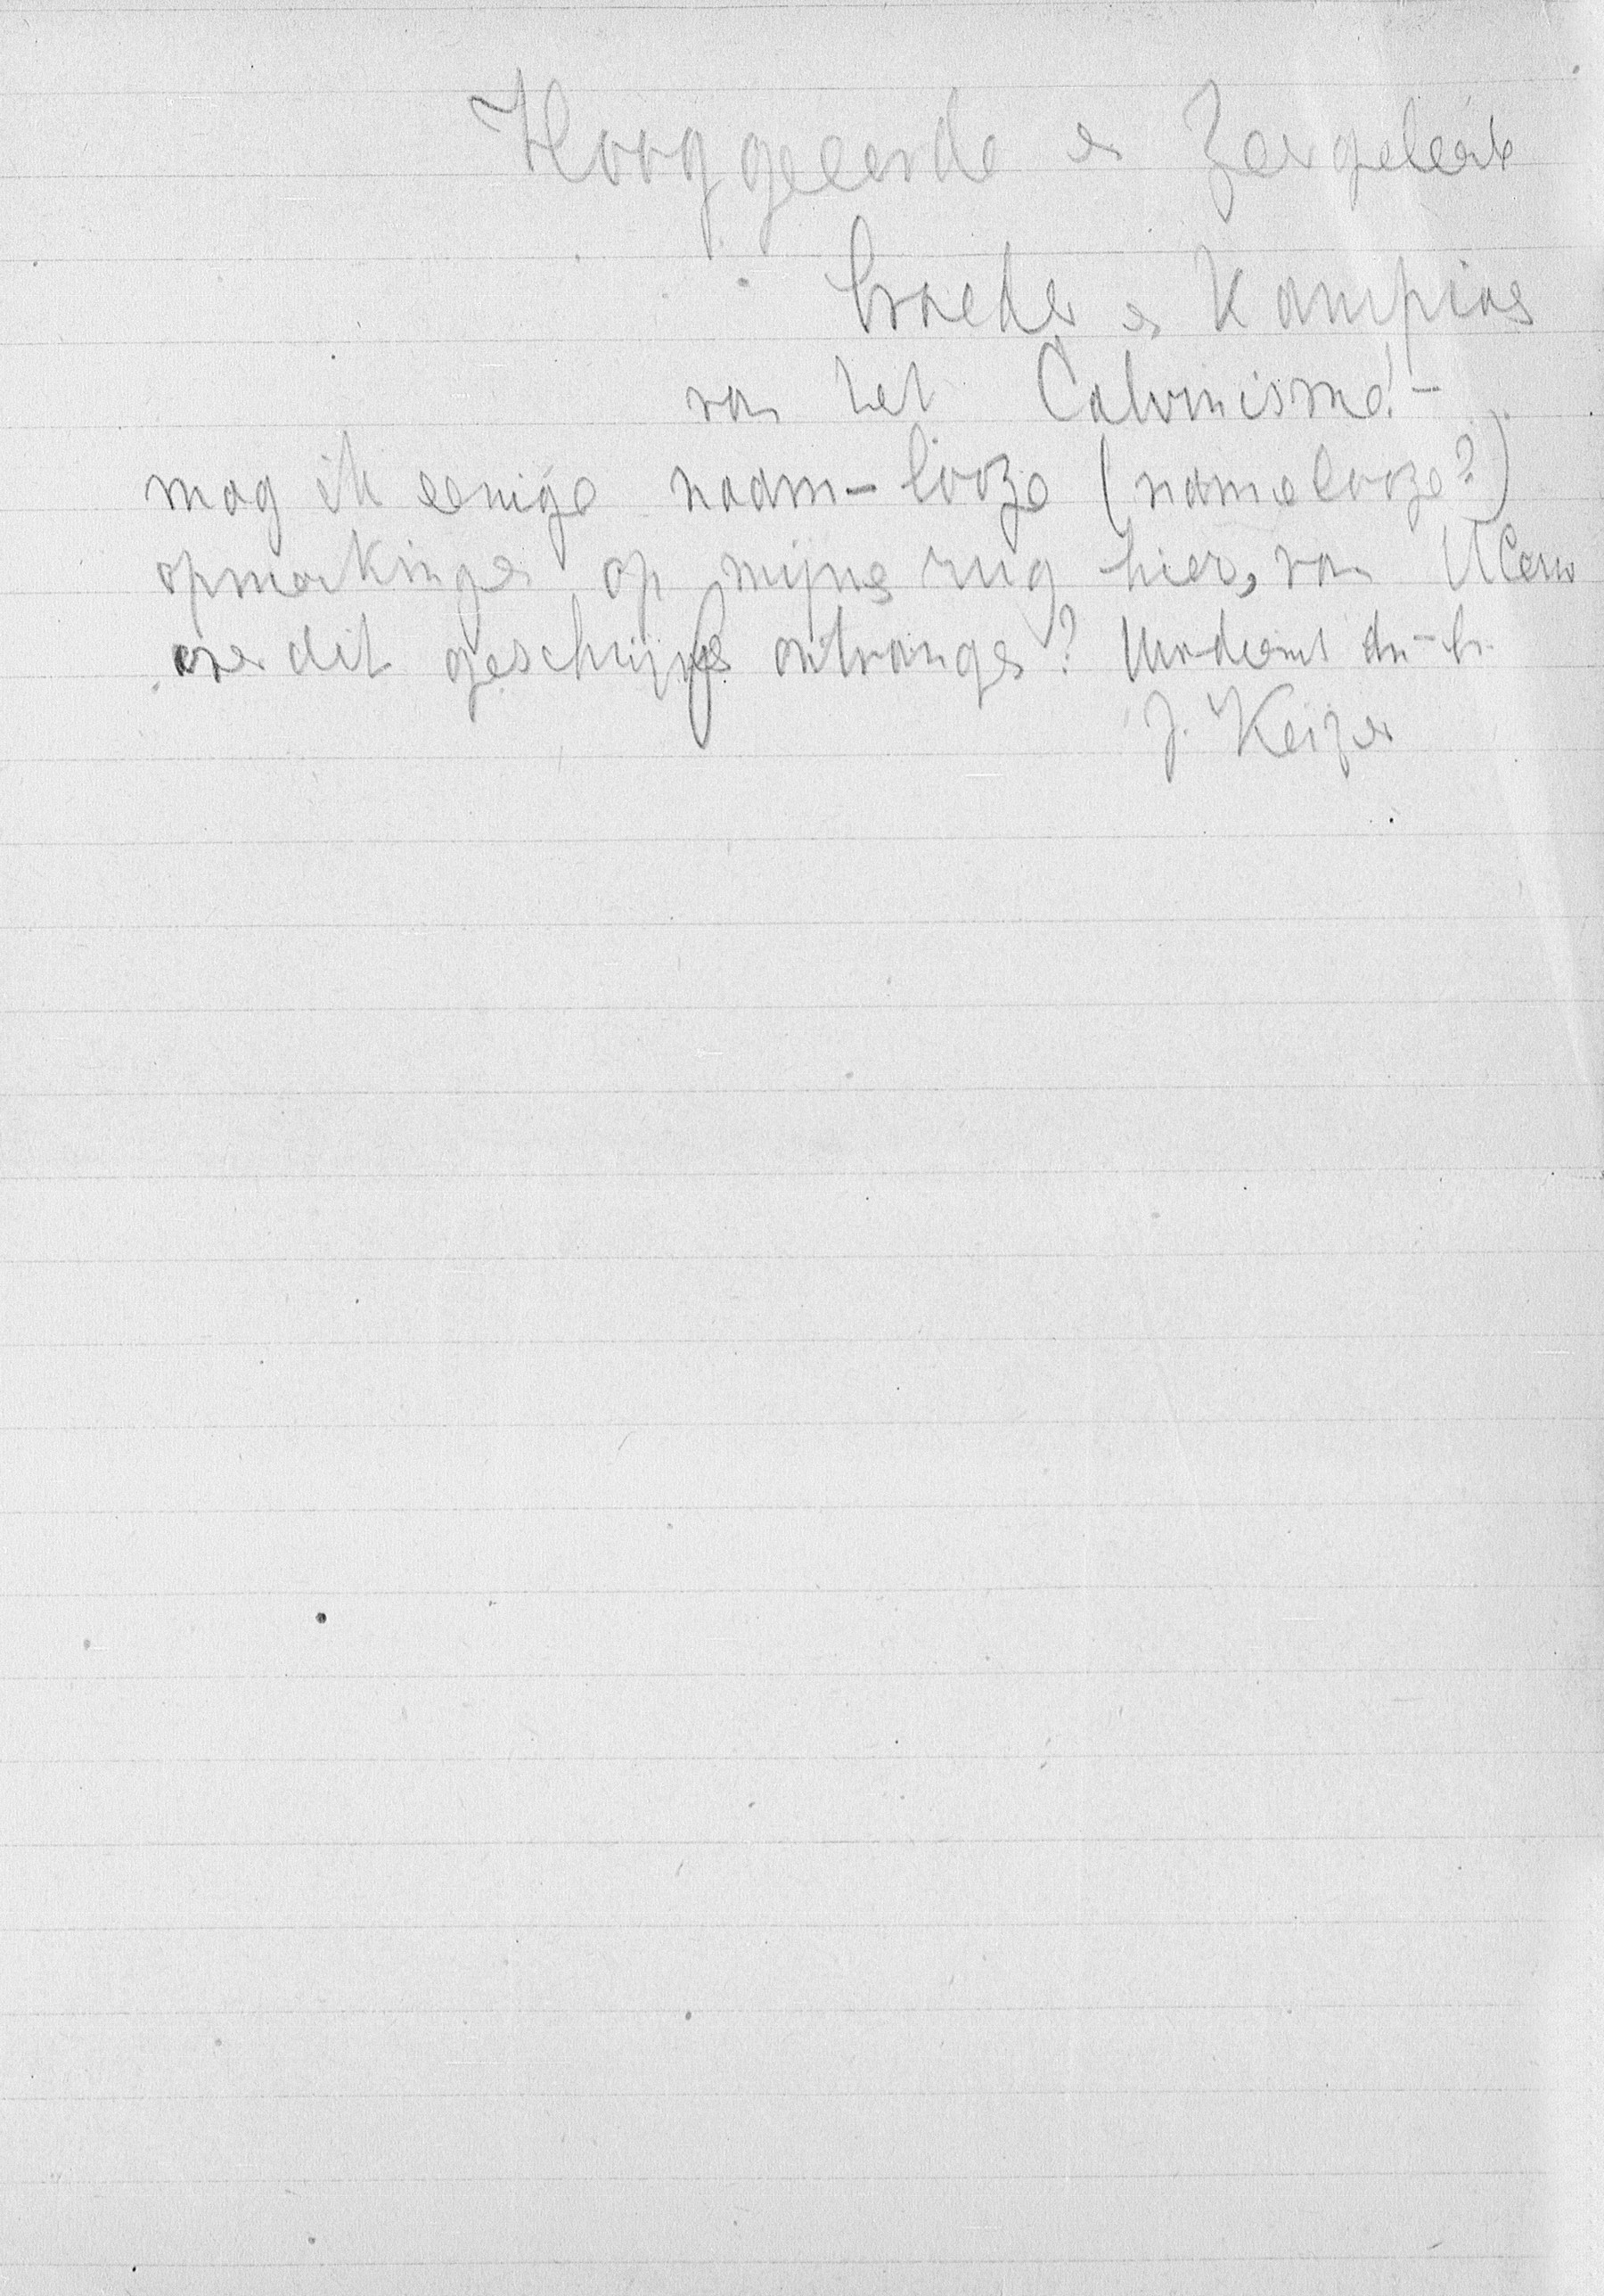 Hooggeeerde en Zeergeleerde
broeder en Kampioen
van het Calvinisme! -
mag ik eenige naam-looze (namelooze?)
opmerkingen op mijne rug hier, van UEerw
over dit geschrijf ontvangen? Uw dw dr - br.
J. Keizer